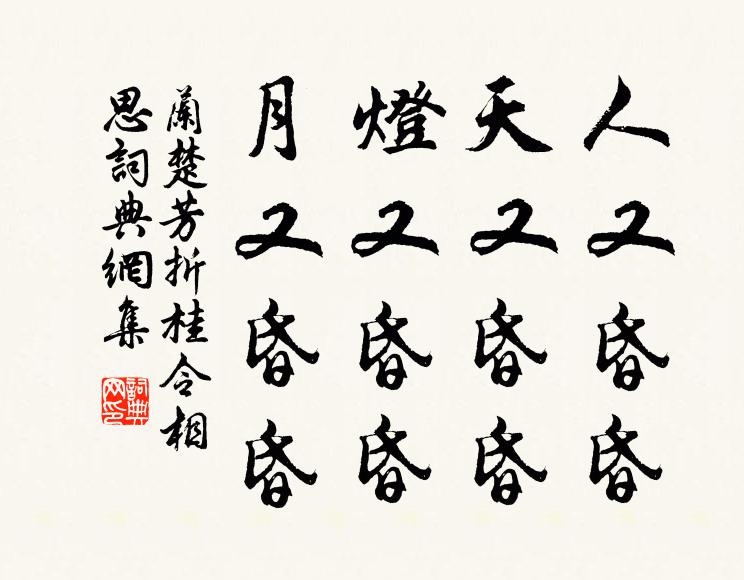 人又昏昏
天又昏昏
燈又昏昏
月又昏昏
蘭楚芳折桂令相
思詞典網集
詞典網印